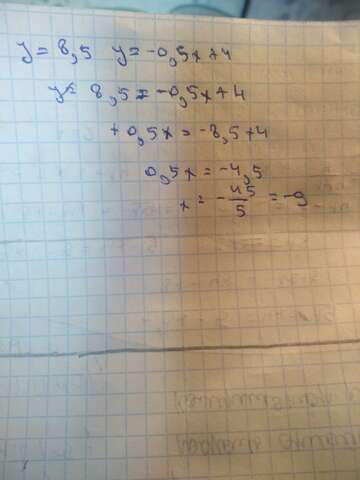 y = 8,5 y = -0,5x+4
y= 8,5 = -0,5x+4
+0,5x = -8,5+4
0,5x = -4,5
x = -45/5 = -9